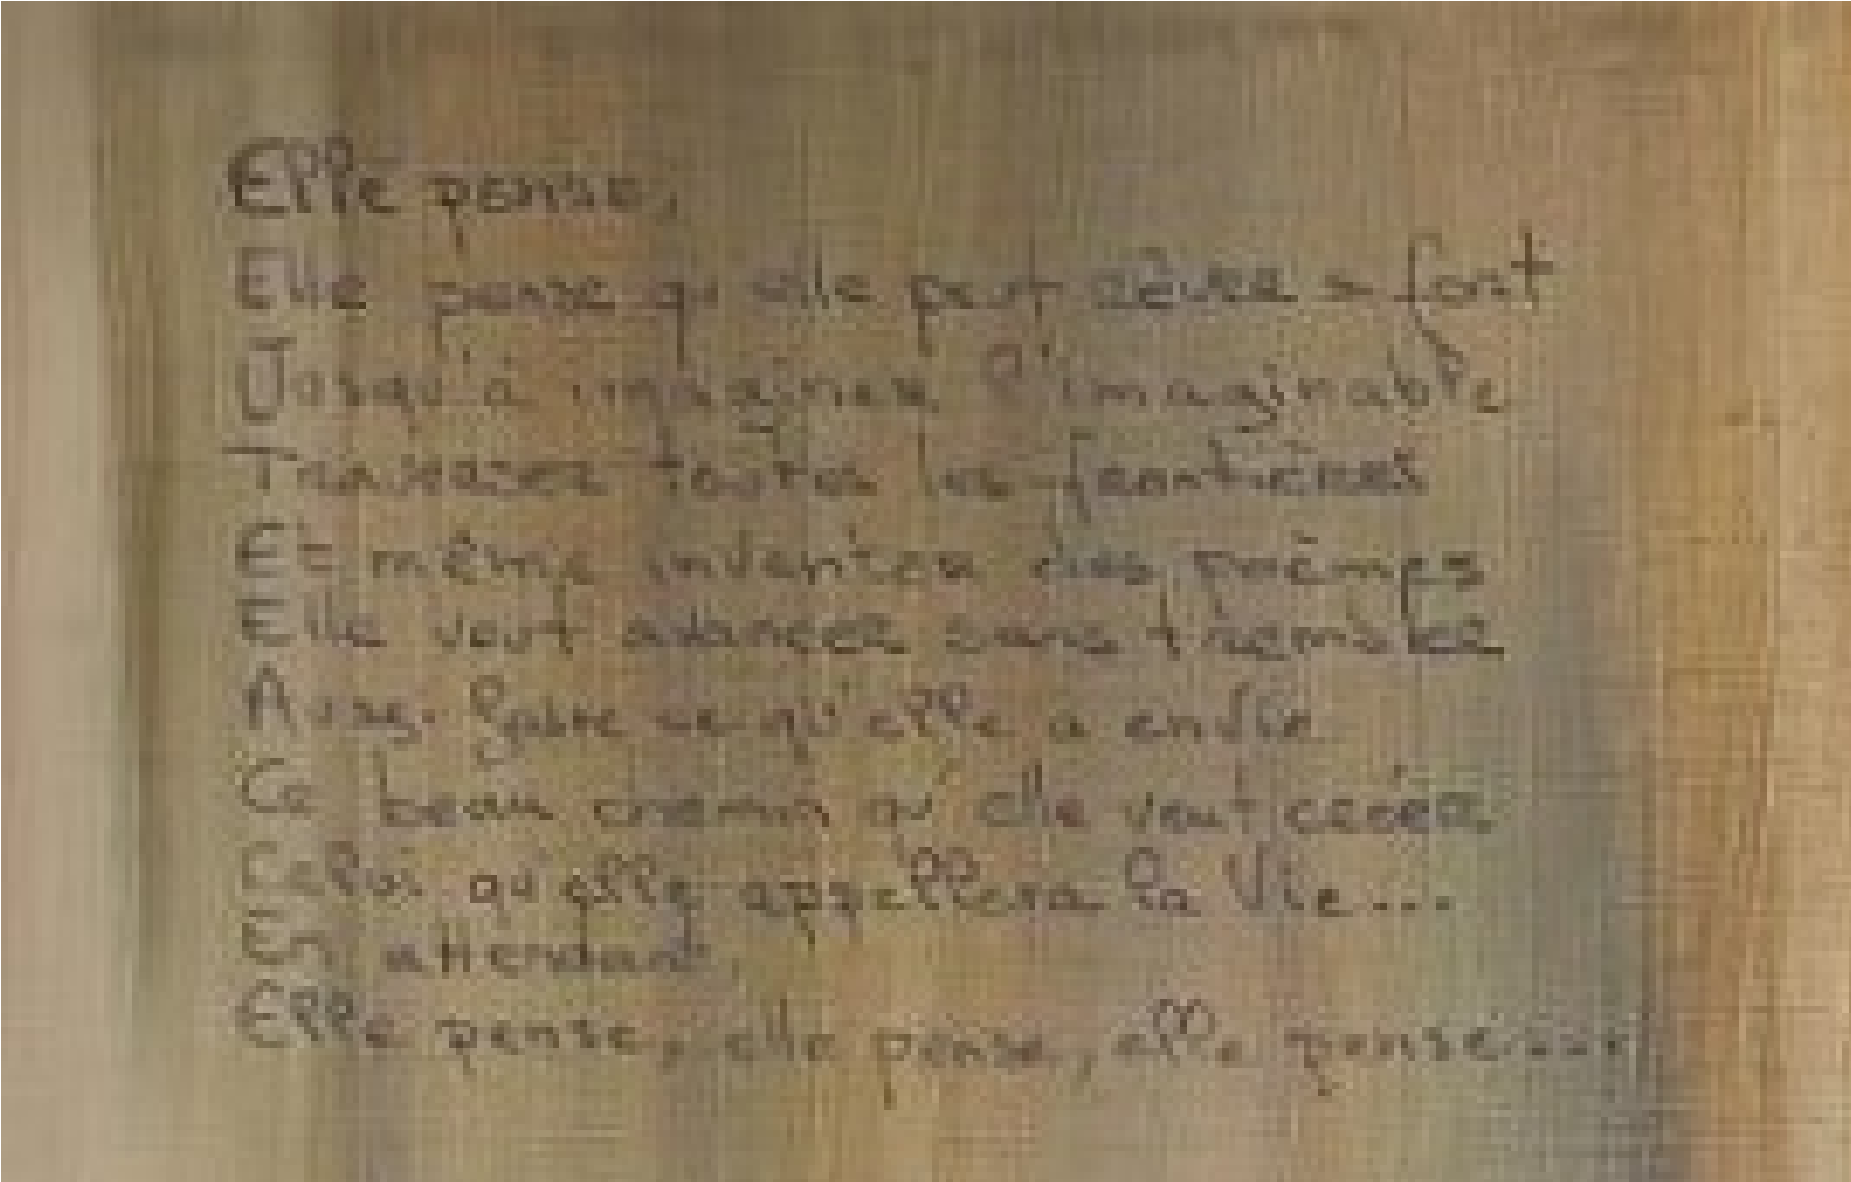 Elle pense,
Elle pense qu'elle peut rêver si fort
Jusqu'à imaginer l'imaginable
Traverser toutes les frontières
Et même inventer des poèmes
Elle veut avancer sans trembler
Aussi que ce qu'elle a envie
Ce beau chemin qu'elle veut créer
Celui qu'elle appellera la Vie...
En attendant,
Elle pense, elle pense, elle pense....